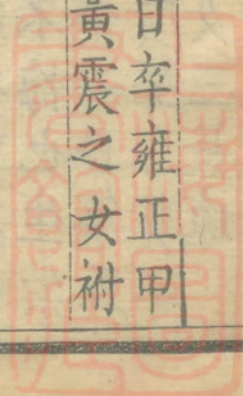 日卒雍正甲
黃震之女祔